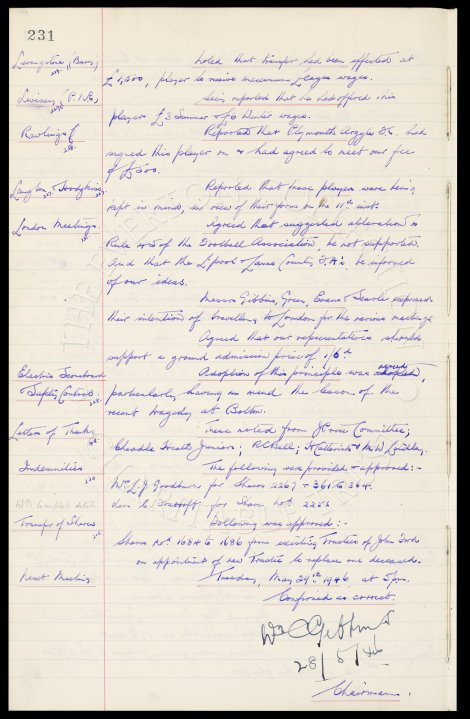 231
noted that transfer had been effected at
£1,500, player to receive maximum League wages.
Secy. reported that he had offered this
player £3 Summer Winter wages.
Rawlings
Reported that Plymouth Argyle F.C. had
signed this player on & had agreed to meet our fee
of £500.
Reported that these players were being
kept in mind, in view of their form on the 11th inst.
London Meetings.
Agreed that suggested alteration to
Rule of the Football Association, be not supported.
And that the L'pool & Lancs County F.A's. be informed
of our ideas.
Messrs Gibbins, Green, Evans & Searle expressed
their intention of travelling to London for the various meetings.
Agreed that our representatives should
support a ground admission price of 1/6d
Electric Scoreboard
Adoption of this principle was agreed,
& Safety Controls
particularly having in mind the lesson of the
recent tragedy at Bolton.
Letters of Thanks
These noted from House Committee;
Cheadle Heath Juniors; R.C. Bell;
Indemnities
The following were provided & approved:-
Mr L.J. Goodburn for Shares 2267 & 361 to 364.
for Share, No. 2256
Transfer of Shares
Following was approved:-
Shares Nos 1684 to 1686 from existing Trustees of John
on appointment of new Trustee to replace one deceased.
Next Meeting
Tuesday, May 29th 1946 at 5pm.
Confirmed as correct.
Wm C Gibbins
28/5/46
Chairman.